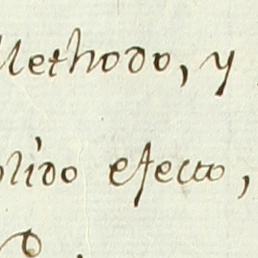 Methodo, y
plido efecto,